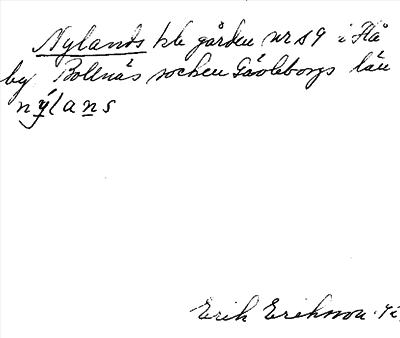 Nylands kle gården nr 19 i Flå
by Bollnäs socken Gävleborgs län
nýlans
Erik Eriksson